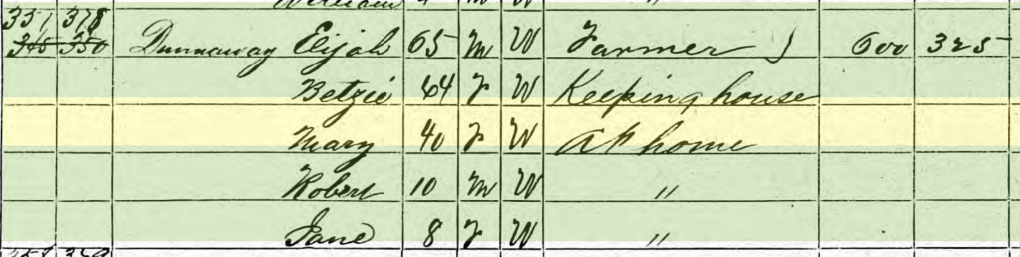 William 4 "
351 378
345 350 Dunnaway Elijah 65 M W Farmer 600 325
Betzie 64 F W Keeping house
Mary 40 F W At home
Robert 10 M W "
Jane 8 F W "